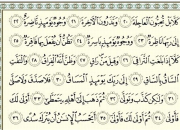 كَلَّا بَلْ تُحِبُّونَ الْعَاجِلَةَ ٢٠ وَتَذَرُونَ الْآخِرَةَ ٢١ وُجُوهٌ يَوْمَئِذٍ نَاضِرَةٌ ٢٢
إِلَى رَبِّهَا نَاظِرَةٌ ٢٣ وَوُجُوهٌ يَوْمَئِذٍ بَاسِرَةٌ ٢٤ تَظُنُّ أَنْ يُفْعَلَ بِهَا فَاقِرَةٌ
٢٥ كَلَّا إِذَا بَلَغَتِ التَّرَاقِيَ ٢٦ وَقِيلَ مَنْ رَاقٍ ٢٧ وَظَنَّ أَنَّهُ الْفِرَاقُ ٢٨ وَالْتَفَّتِ
السَّاقُ بِالسَّاقِ ٢٩ إِلَى رَبِّكَ يَوْمَئِذٍ الْمَسَاقُ ٣٠ فَلَا صَدَّقَ وَلَا صَلَّى
٣١ وَلَكِنْ كَذَّبَ وَتَوَلَّى ٣٢ ثُمَّ ذَهَبَ إِلَى أَهْلِهِ يَتَمَطَّى ٣٣ أَوْلَى لَكَ
فَأَوْلَى ٣٤ ثُمَّ أَوْلَى لَكَ فَأَوْلَى ٣٥ أَيَحْسَبُ الْإِنْسَانُ أَنْ يُتْرَكَ سُدًى ٣٦